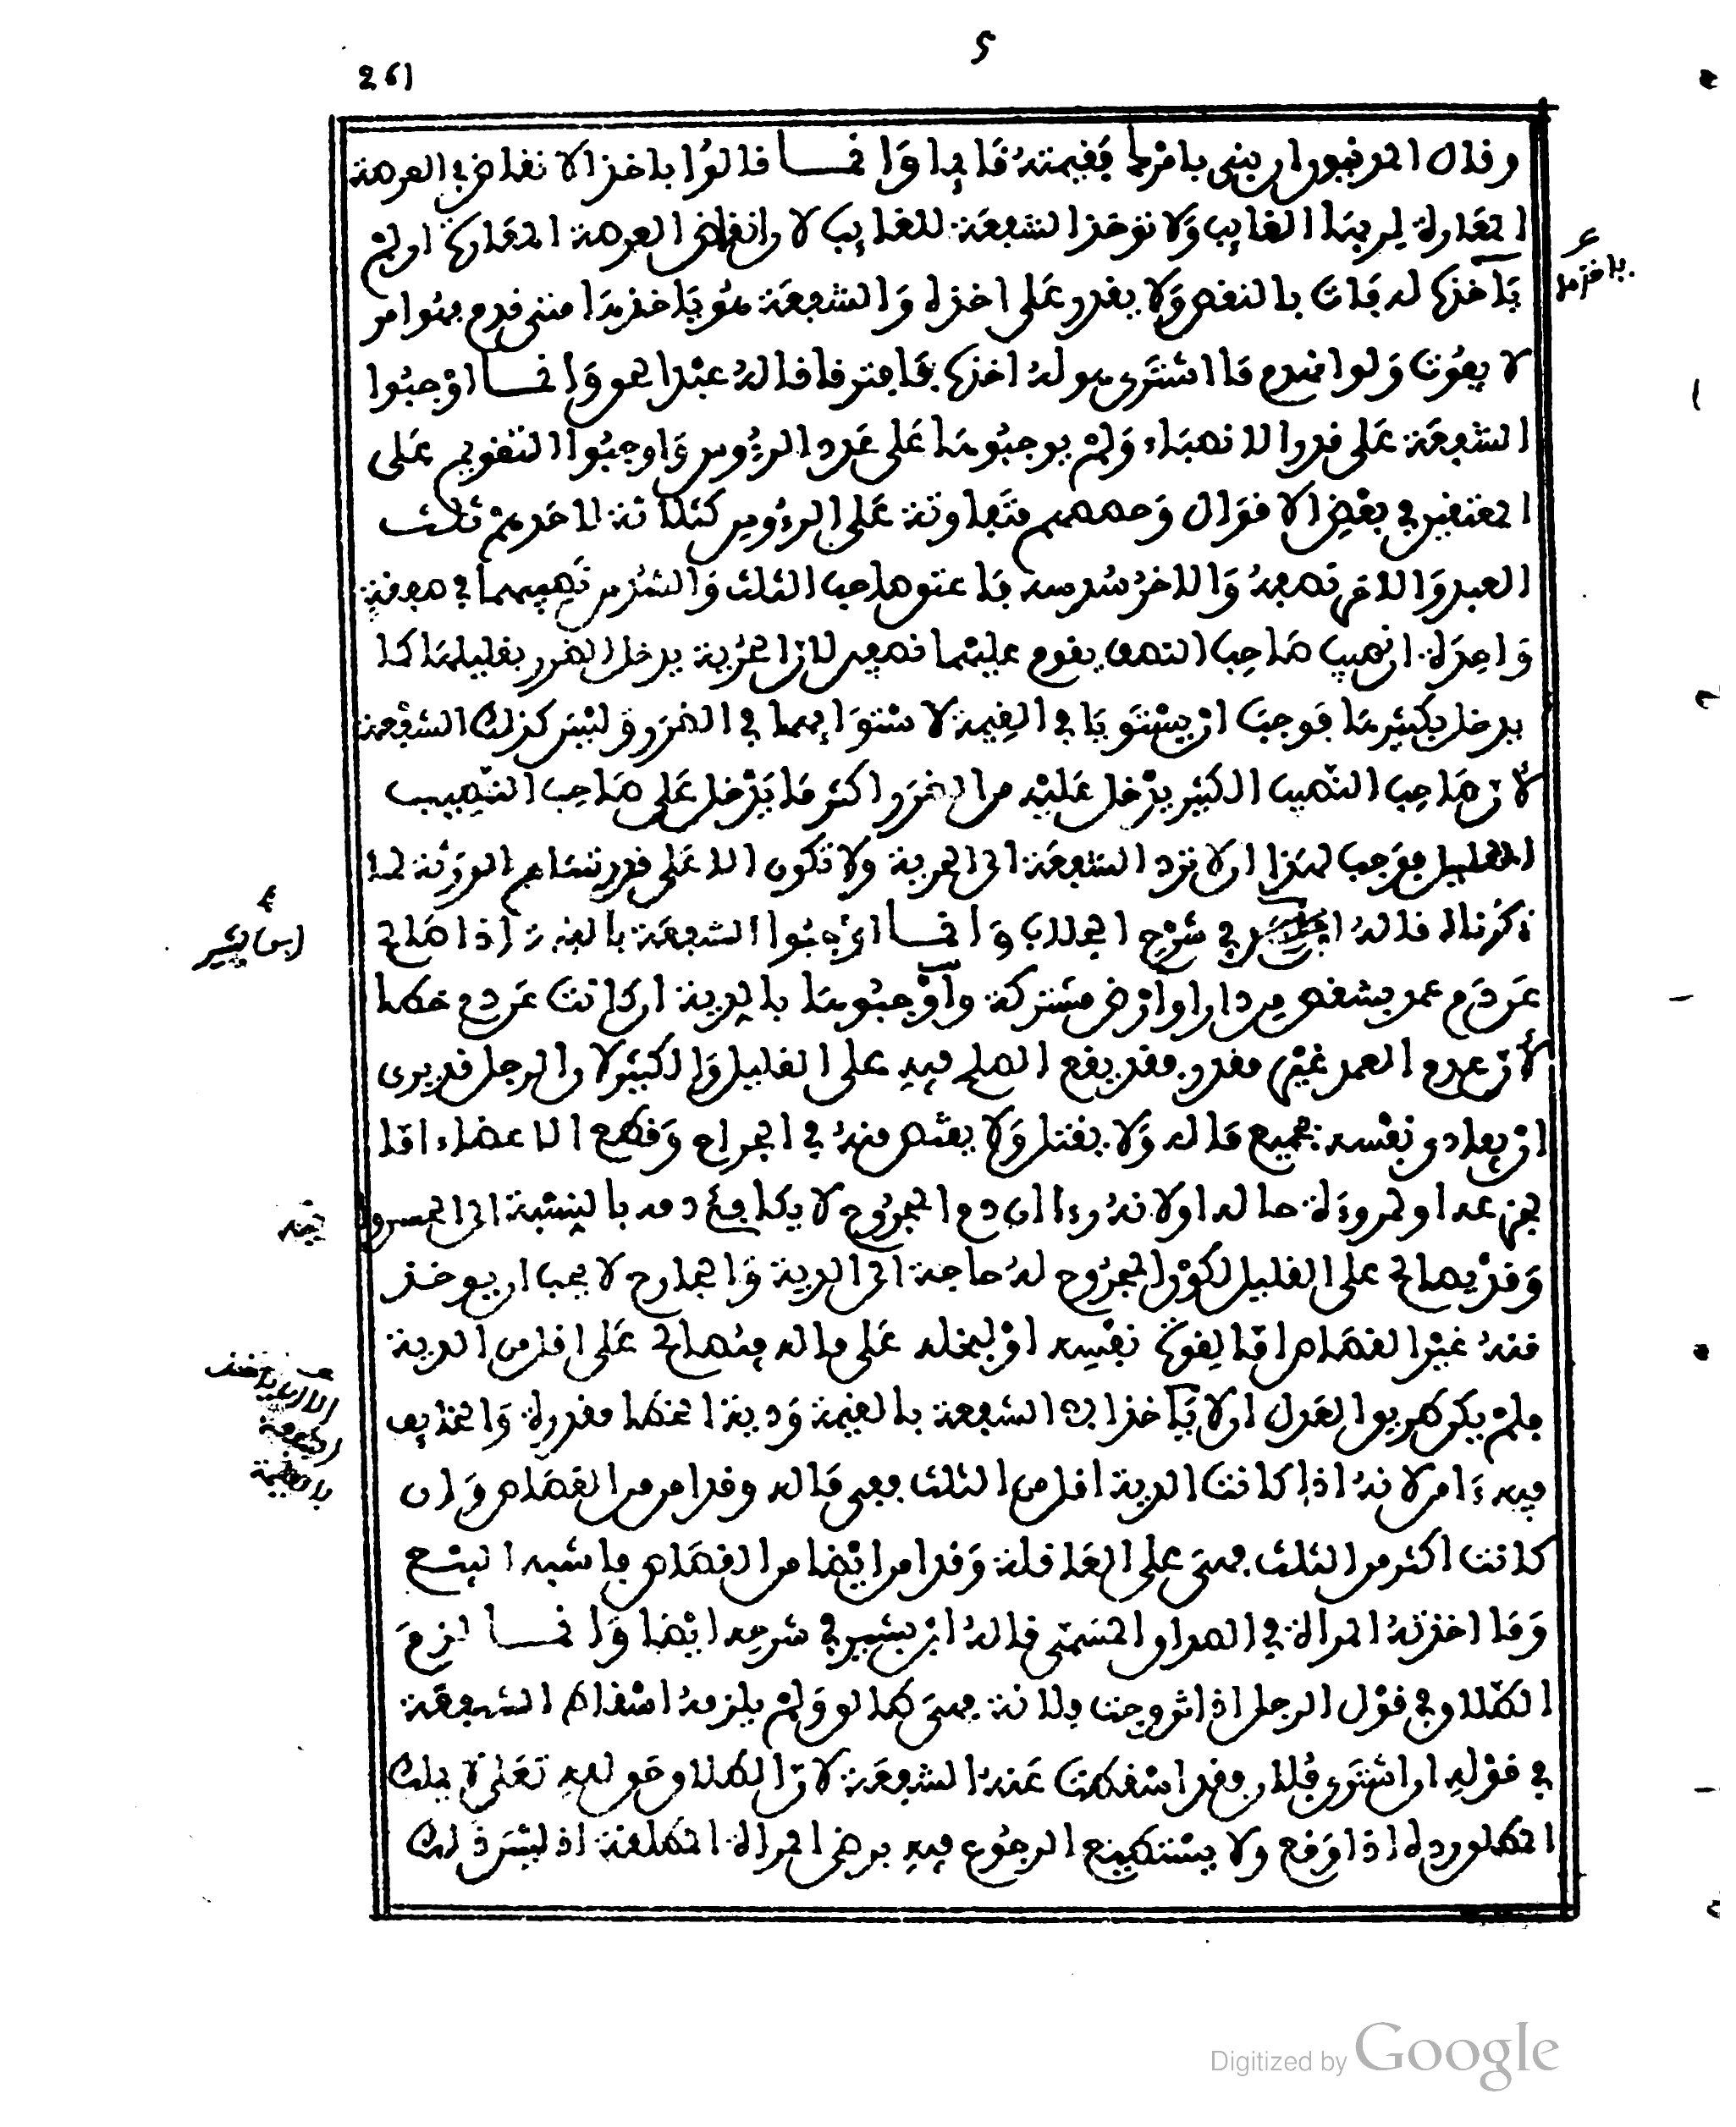 5
261
وقال المدنيون إن بنى بأمرها فقيمته قائما وإنما قالوا بأخذ الأنقاض في العرصة
المعارة لربها الغائب ولا تؤخذ الشفعة للغائب لأن أنقاض العرصة المعارة إن لم
يأخذها له فات بالنقص ولا يقدر على أخذه والشفعة هو يأخذها متى قدم فهو أمر
لا يفوت ولو انهدم ما اشترى هو له أخذها فافترقا قاله عبد الحق وإنما أوجبوا
الشفعة على قدر الأنصباء ولم يوجبوها على عدد الرؤوس وأوجبوا التقويم على
المعتقين في بعض الأقوال وحصصهم متفاوتة على الرؤوس كثلاثة لأحدهم ثلث
العبد والآخر نصفه وللآخر سدسه فأعتق صاحب الثلث والسدس نصيبهما في صفقة
واحدة أن نصيب صاحب النصف يقوم عليهما نصفين لأن الحرية يدخل الضرر بقليلها كما
يدخل بكثيرها فوجب أن يستويا في القيمة لاستوائهما في الضرر وليس كذلك الشفعة
لأن صاحب النصيب الكثير يدخل عليه من الضرر أكثر مما يدخل على صاحب النصيب
القليل فوجب لهذا أن لا ترد الشفعة إلى الحرية ولا تكون إلا على قدر تساهم الورثة لما
ذكرناه قاله في شرح الجلاب وإنما أوجبوا الشفعة بالقيمة إذا صالح
عن دم عمد بشقص من دار أو أرض مشتركة وأوجبوها بالدية إن كانت عن دم خطأ
لأن عدم العمد غير مقدر فقد يقع الصلح فيه على القليل والكثير لأن الرجل قد يرى
أن يفادي نفسه بجميع ماله ولا يقتل ولا يقتص منه في الجراح وقطع الأعضاء إما
لجزعه أو لمروءة حاله أو لأنه رءا أن دم المجروح لا يكافئ دمه بالنسبة إلى
وقد يصالح على القليل لكون المجروح له حاجة إلى الدية والجارح لا يجب أن يوخذ
منه غير القصاص إما لقوة نفسه أو لبخله على ماله فيصالح على أقل من الدية
فلم يكن طريق العدل أن لا يأخذ الشفعة بالقيمة ودية الخطإ مقدرة والخائف
فيه ءامن لأنه إذا كانت الدية أقل من الثلث ففي ماله وقد أمن من القصاص وإن
كانت أكثر من الثلث فهي على العاقلة وقد أمن أيضا من القصاص فأشبه البيع
وما أخذته المرأة في الصداق المسمى قاله ابن بشير في شرحه أيضا وإنما لزم
الطلاق في قول الرجل إذا تزوجت فلانة فهي طالق ولم يلزمه إسقاط الشفعة
في قوله إن اشترى فلان فقد أسقطت عنه الشفعة لأن الطلاق حق لله تعلى لا يملك
المطلق رده إذا وقع ولا يستطيع الرجوع فيه برضى المرأة المطلقة إذ ليس ذلك
يأخذها
ابن بشير